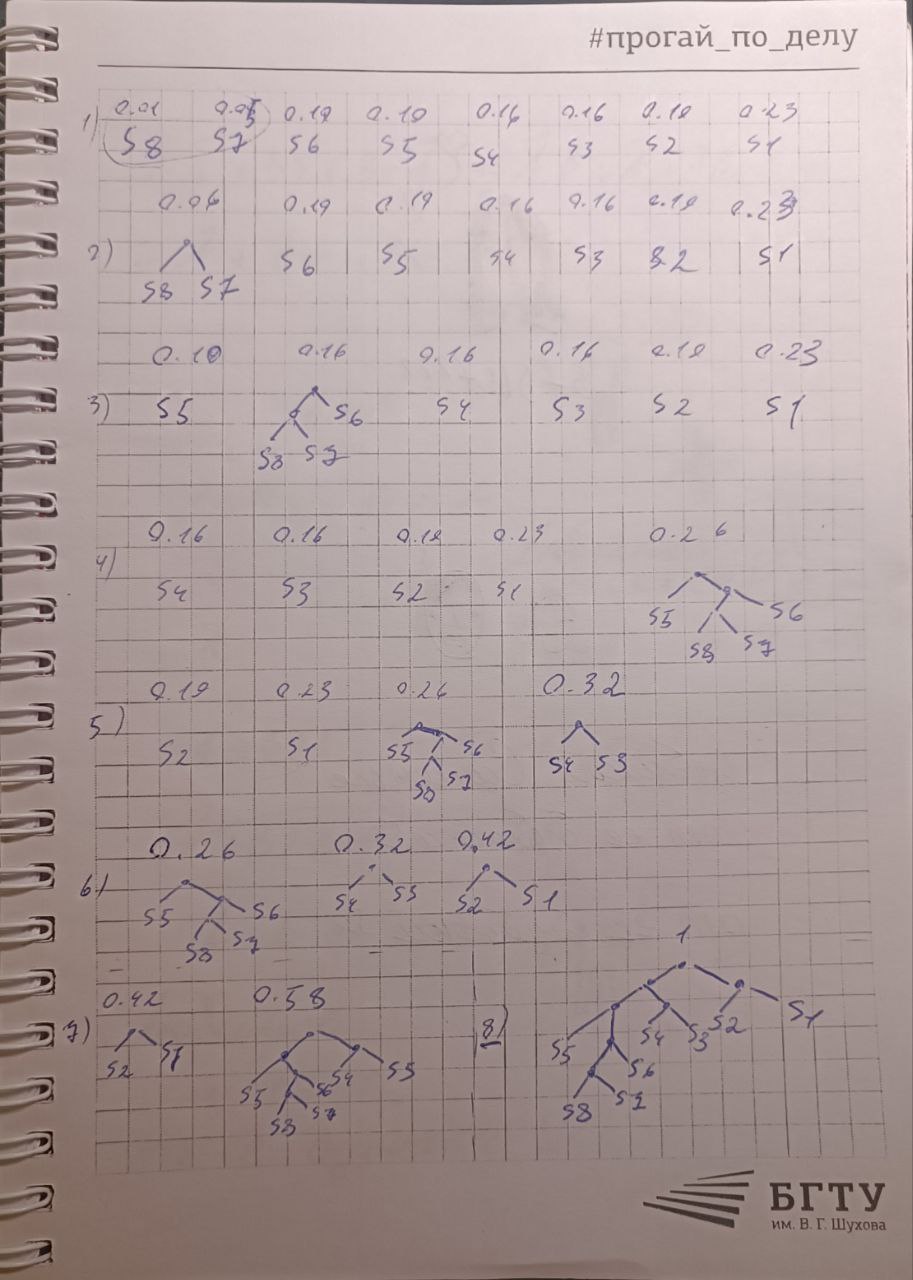 #прогай_по_делу
0.01 0.05 0.10 0.10 0.16 0.16 0.19 0.23
1) S8 S7 S6 S5 S4 S3 S2 S1
0.06 0.10 0.10 0.16 0.16 0.19 0.23
2) S6 S5 S4 S3 S2 S1
S8 S7
0.10 0.16 0.16 0.16 0.19 0.23
3) S5 S6 S4 S3 S2 S1
S8 S7
0.16 0.16 0.19 0.23 0.26
4) S4 S3 S2 S1 S5 S6
S8 S7
0.19 0.23 0.26 0.32
5) S2 S1 S5 S6 S4 S3
S8 S7
0.26 0.32 0.42
6) S5 S6 S4 S3 S2 S1
S8 S7
1
0.42 0.58
7) S2 S1 S5 S6 S4 S3
S8 S7
8) S5 S4 S3 S2 S1
S6
S8 S7
БГТУ
им. В. Г. Шухова